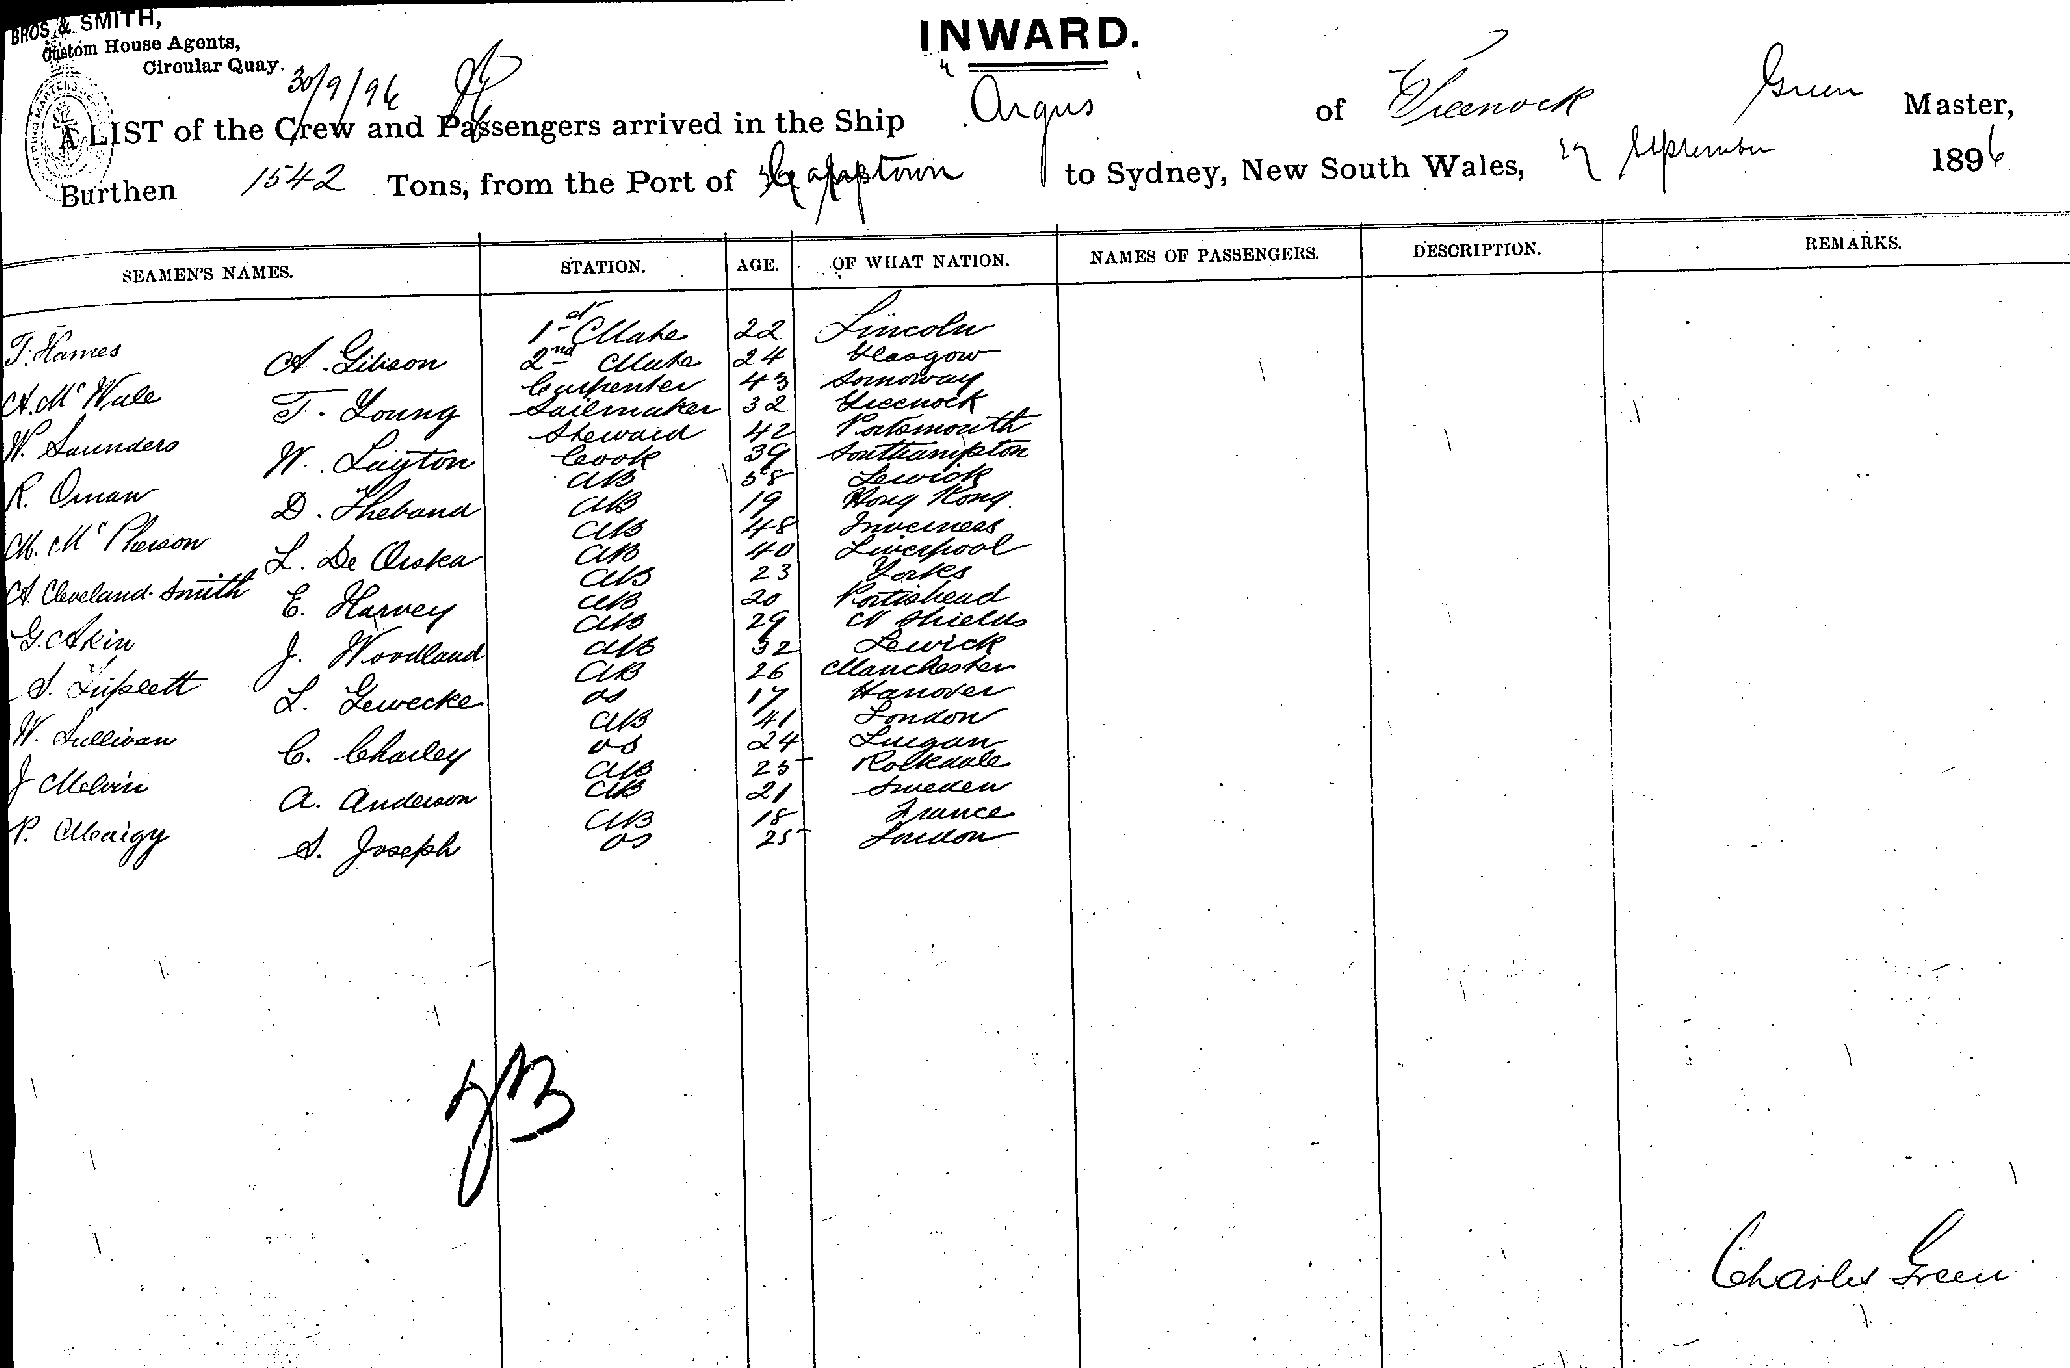 BROS & SMITH,
Custom House Agents,
Circular Quay.
30/9/96
INWARD.
A LIST of the Crew and Passengers arrived in the Ship "Argus of Greenock Green Master,
Burthen 1542 Tons, from the Port of Capetown to Sydney, New South Wales, 29 September 1896
SEAMEN'S NAMES. STATION. AGE. OF WHAT NATION. NAMES OF PASSENGERS. DESCRIPTION. REMARKS.
T. Hames 1st Mate 22 Lincoln
A. Gibson 2nd Mate 24 Glasgow
A. Mc Carpenter 43
T. Young Sailmaker 32 Greenock
W. Saunders Steward 42 Portsmouth
W. Layton Cook 39 Southampton
R. Oman AB 58 Lerwick
D. AB 19 Hong Kong.
M. McPherson AB 48 Inverness
L. De AB 40 Liverpool
A. Cleveland-Smith AB 23 Yorks
E. Harvey AB 20 Portishead
G. Akin AB 29 N Shields
J. Woodland AB 32 Lewick
S. Lipsett AB 26 Manchester
L. Gewecke OS 17 Hanover
W. Sullivan AB 41 London
C. Charley OS 24 Lurgan
J Melvin AB 25 Rockdale
A. Anderson AB 21 Sweden
P. AB 18 France
S. Joseph OS 25 London
Charles Green